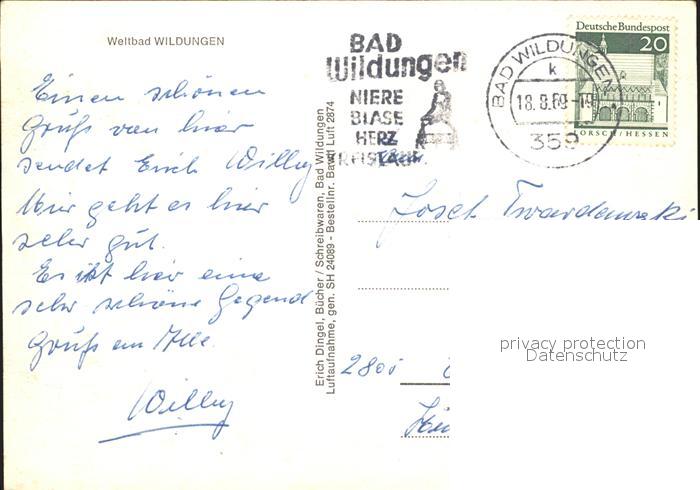 Weltbad WILDUNGEN
Einen schönen
Gruß von hier
sendet Euch Willy
Mir geht es hier
sehr gut.
Es ist hier eine
sehr schöne Gegend
Gruß an Alle.
Willy
Erich Dingel, Bücher / Schreibwaren, Bad Wildungen
Luftaufnahme, gen. SH 24089 - Bestellnr. Bawi Luft 2874
BAD
Wildungen
NIERE
BLASE
HERZ
KREISLAUF
BAD WILDUNGEN
k
18.8.69-19
359
Deutsche Bundespost
20
LORSCH/HESSEN
Fam.
Josef Twardawski
2801
privacy protection
Datenschutz